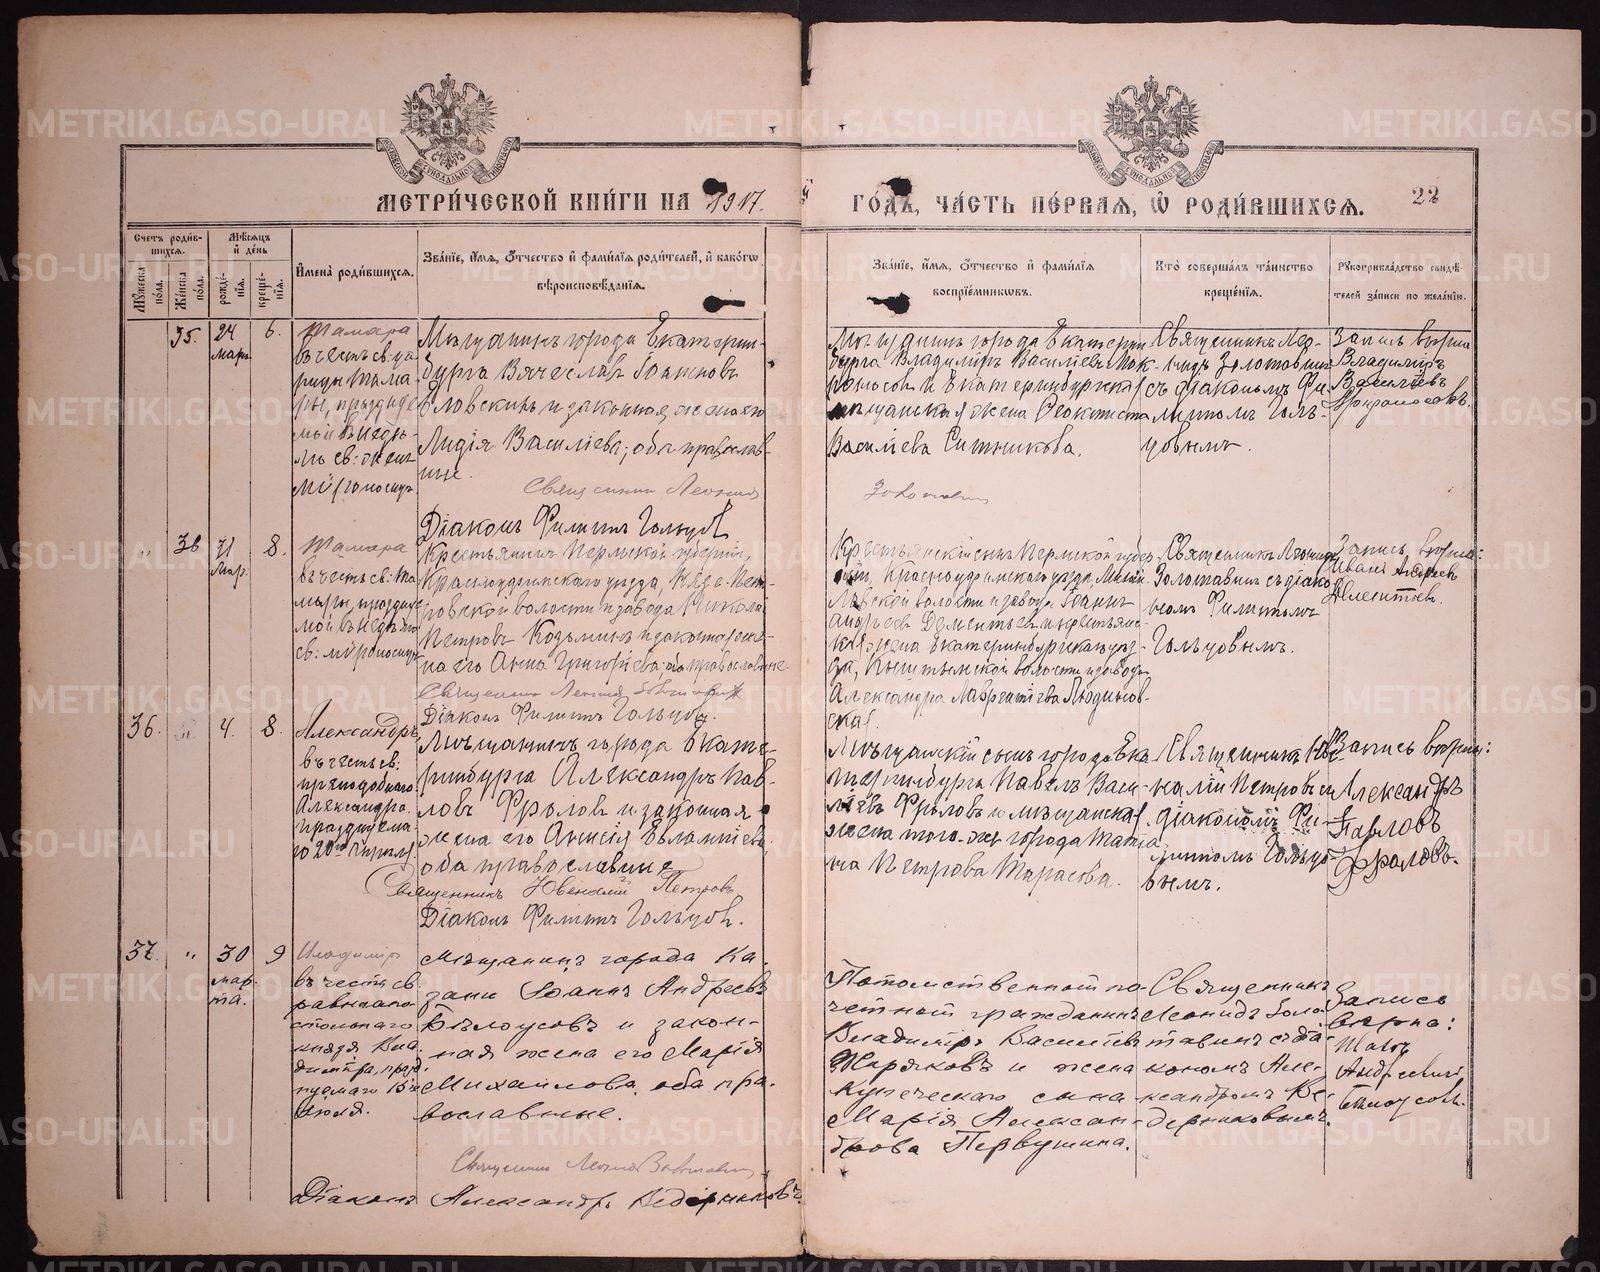 МЕТРИ́ЧЕСКОЙ КНИ́ГИ НА 1917.
ГО́ДЪ, ЧА́СТЬ ПЕ́РВАЯ, Ѡ РОДИ́ВШИХСѦ.
22
Счетъ роди́в-
шихся.
Мѣ́сяцъ
и де́нь
Мꙋжеска по́ла.
Же́нска по́ла.
рожде́-
нїя.
креще́-
нїя.
Имена̀ роди́вшихся.
Зва́нїе, и́мя, ѻ́тчество и фами́лїя роди́телей, и како́гѡ
вѣроисповѣ́данїя.
Зва́нїе, и́мя, ѻ́тчество и фами́лїя
воспрїе́мникѡвъ.
Кто̀ соверша́лъ та́инство
креще́нїя.
Рꙋкоприкла́дство свидѣ́-
телей за́писи по жела́нїю.
35.
24
мар.
6.
Тамара
въ честь св: ца-
рицы Тама-
ры, празднуе-
мой въ недѣ-
лю св: жен
мѵроносицъ
Мѣщанинъ города Екатерин-
бурга Вячеславъ Іоанновъ
и законная жена его
Лидія Васильева; оба православ-
ные.
Священникъ Леонидъ
Золотавинъ
Діаконъ Филиппъ Гольцовъ
Мѣщанинъ города Екатерин
бурга Владиміръ Васильевъ Мок-
роносовъ и Екатеринбургская
мѣщанская жена Феоктиста
Васильева Ситникова.
Священникъ Лео-
нидъ Золотавинъ
съ діакономъ Фи-
липпомъ Голь-
цовымъ.
Запись вѣрна
Владиміръ
Васильевъ
Мокроносовъ.
"
36
31
мар.
8.
Тамара
въ честь св: Та-
мары, праздне-
мой въ недѣлю
св: мѵроносицъ
Крестьянинъ Пермской губерніи,
Красноуфимскаго уѣзда, Нязе-Пет-
ровской волости и завода Никола
Петровъ Козьминъ и законная же-
на его Анна Григорьева: оба православные
Священникъ Леонидъ Золотавинъ
Діаконъ Филиппъ Гольцовъ.
Крестьянскій сынъ Пермской губер-
ніи, Красноуфимскаго уѣзда, Михай-
ловской волости и завода Іоаннъ
Андреевъ Дементьевъ и крестьянс-
кая жена Екатеринбургскаго уѣз-
да, Кыштымской волости и завода
Александра Лаврентіева Людинов-
ская.
Священникъ Леонидъ
Золотавинъ съ діако-
номъ Филиппомъ
Гольцовымъ.
Запись вѣрна:
Иванъ Андреевъ
Дементьев.
36.
4.
8.
Александръ
въ честь св:
преподобнаго
Александра
празднуема-
го 20го Апреля
Мѣщанинъ города Екате-
ринбурга Александръ Пав-
ловъ Фроловъ и законная
жена его Анисія Евлампіева,
оба православные
Священникъ Ювеналій Петровъ
Діаконъ Филиппъ Гольцовъ.
Мѣщанскій сынъ города Ека-
теринбурга Павелъ Васи-
льевъ Фроловъ и мѣщанская
жена того-же города Татья
на Петрова Тарасова.
Священникъ Юве-
налій Петровъ съ
діакономъ Фи-
липпомъ Гольцо-
вымъ.
Запись вѣрна:
Александръ
Павловъ
Фроловъ.
37.
"
30
мар-
та.
9
Владиміръ
въ честь св.
равноапо-
стольнаго
князя Вла-
диміра, празд-
нуемаго 15
Іюля.
Мѣщанинъ города Ка-
зани Іоаннъ Андреевъ
Бѣлоусовъ и закон-
ная жена его Марія
Михаилова, оба пра-
вославные.
Священникъ Леонидъ Золотавинъ
Діаконъ Александръ Ведерниковъ.
Потомственный по-
четный гражданинъ
Владиміръ Васильевъ
Жиряковъ и жена
купеческаго сына
Марія Алексан-
дрова Первушина.
Священникъ
Леонидъ Золо-
тавинъ съ діа-
кономъ Але-
ксандромъ Ве-
дерниковымъ.
Запись
вѣрна:
Иванъ
Андреевичъ
Бѣлоусовъ.
METRIKI.GASO-URAL.RU